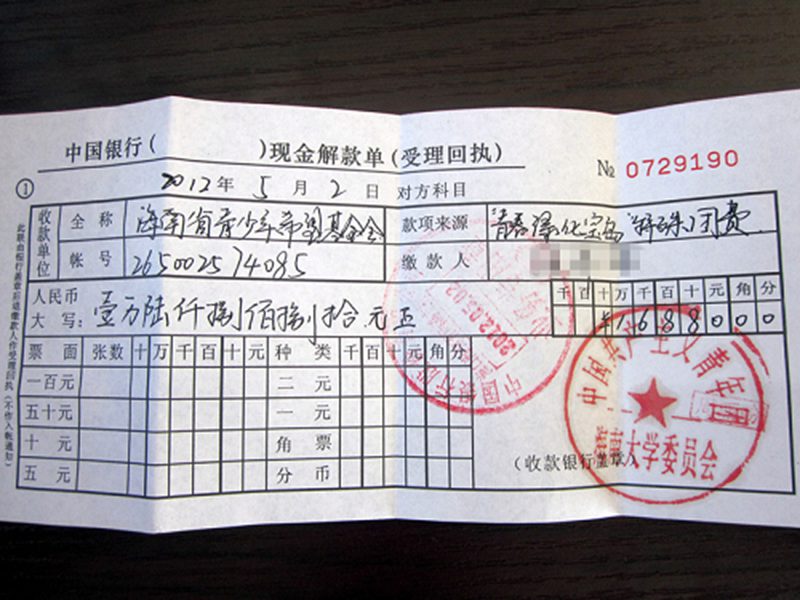 中国银行( )现金解款单(受理回执)
№ 0729190
①
2012年 5 月 2 日 对方科目
收款单位 全称 海南省青少年希望基金会 款项来源 青春绿化宝岛 特殊团费
帐号 265002574085 缴款人
人民币 千百十万千百十元角分
大写: 壹万陆仟捌佰捌拾元正 ¥1688000
票面 张数 十万千百十元 种类 千百十元角分
一百元 二元
五十元 一元
十元 角票
五元 分币
(收款银行盖章)
此联由银行盖章后退缴款人作受理回执(不作入帐通知)
中国银行
中国共产主义青年团
大学委员会